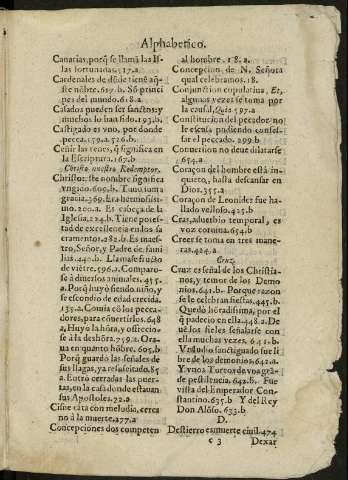 Alphabetico.
Canarias, porq̃ se llamã las Is-
las fortunadas. 517.a
Cardenales de dõde tiene aq̃-
ste nõbre. 617.b. Sõ princi-
pes del mundo. 618.a
Casados pueden ser sanctos y
muchos lo han sido. 193.b,
Castigado es vno, por donde
pecca. 159.a 526.b.
Ceñir las renes, q̃ significa en
la Escriptura. 167.b
Christo nuestro Redemptor.
Christo: este nombre significa
vngido. 609.b. Tuuo suma
gracia. 369. Era hermosissi-
mo. 200.a. Es cabeça de la
Iglesia. 224.b. Tiene potes-
tad de excelencia en los sa-
cramentos. 282.b. Es maes-
tro, Señor, y Padre de fami
lias. 440.b. Llamase fructo
de vientre. 596.a. Comparo-
se a diuersos animales. 455.
a. Porq̃ huyò siendo niño, y
se escondio de edad crecida.
135.a. Comia cõ los pecca-
dores, para cõuertirlos. 648
a. Huyo la hõra, y ofrecio-
se à la deshõra. 759.a. Ora-
ua en quanto hõbre. 605.b
Porq̃ guardò las señales de
sus llagas, ya resuscitado. 85
.a Entrò cerradas las puer-
tas, en la casa donde estauan
sus Apostoles. 72.a
Cisne cãta con melodia, cerca
no à la muerte. 277.a
Concepciones dos competen
al hombre. 18.a.
Concepcion de N. Señora
qual celebramos. 18.
Conjunction copulatiua, Et,
algunas vezes se toma por
la causal, Quia 597.a
Constitucion del peccador no
le escusa pudiendo confes-
sar el peccado. 299.b
Contriccion no deue dilatarse
, 654.a
Coraçon del hombre està in-
quieto, hasta descansar en
Dios. 355.a
Coraçon de Leonidez fue ha-
llado velloso. 425.b
Cras, aduerbio temporal, es
voz coruina. 654.b
Creerse toma en tres mane-
ras. 424.a
Cruz.
Cruz es señal de los Christia-
nos, y temor de los Demo
nios. 641.b. Porque razon
se le celebran fiestas. 445.b.
Quedò hõradissima, por el
q̃ padecio en ella. 448.a. De
uẽ los fieles señalarse con
ella muchas vezes. 641.b.
Vn Iudio sanctiguado fue li
bre de los demonios. 642.a
Y vnos Turcos de vna grã-
de pestilencia. 642.b. Fue
vista del Emperador Cons-
tantino. 635.b Y del Rey
Don Alõso. 633.b
D.
Destierro es muerte ciuil. 474
c 3 Dexar